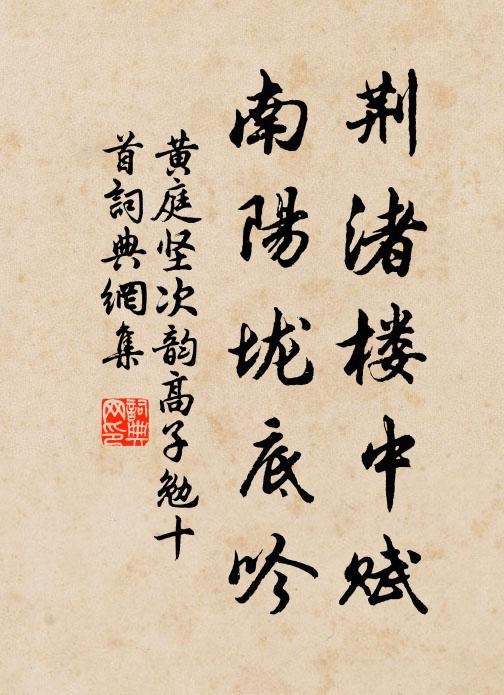 荆渚楼中赋
南陽垅底吟
黄庭坚次韵高子勉十
首詞典網集
詞典
网印